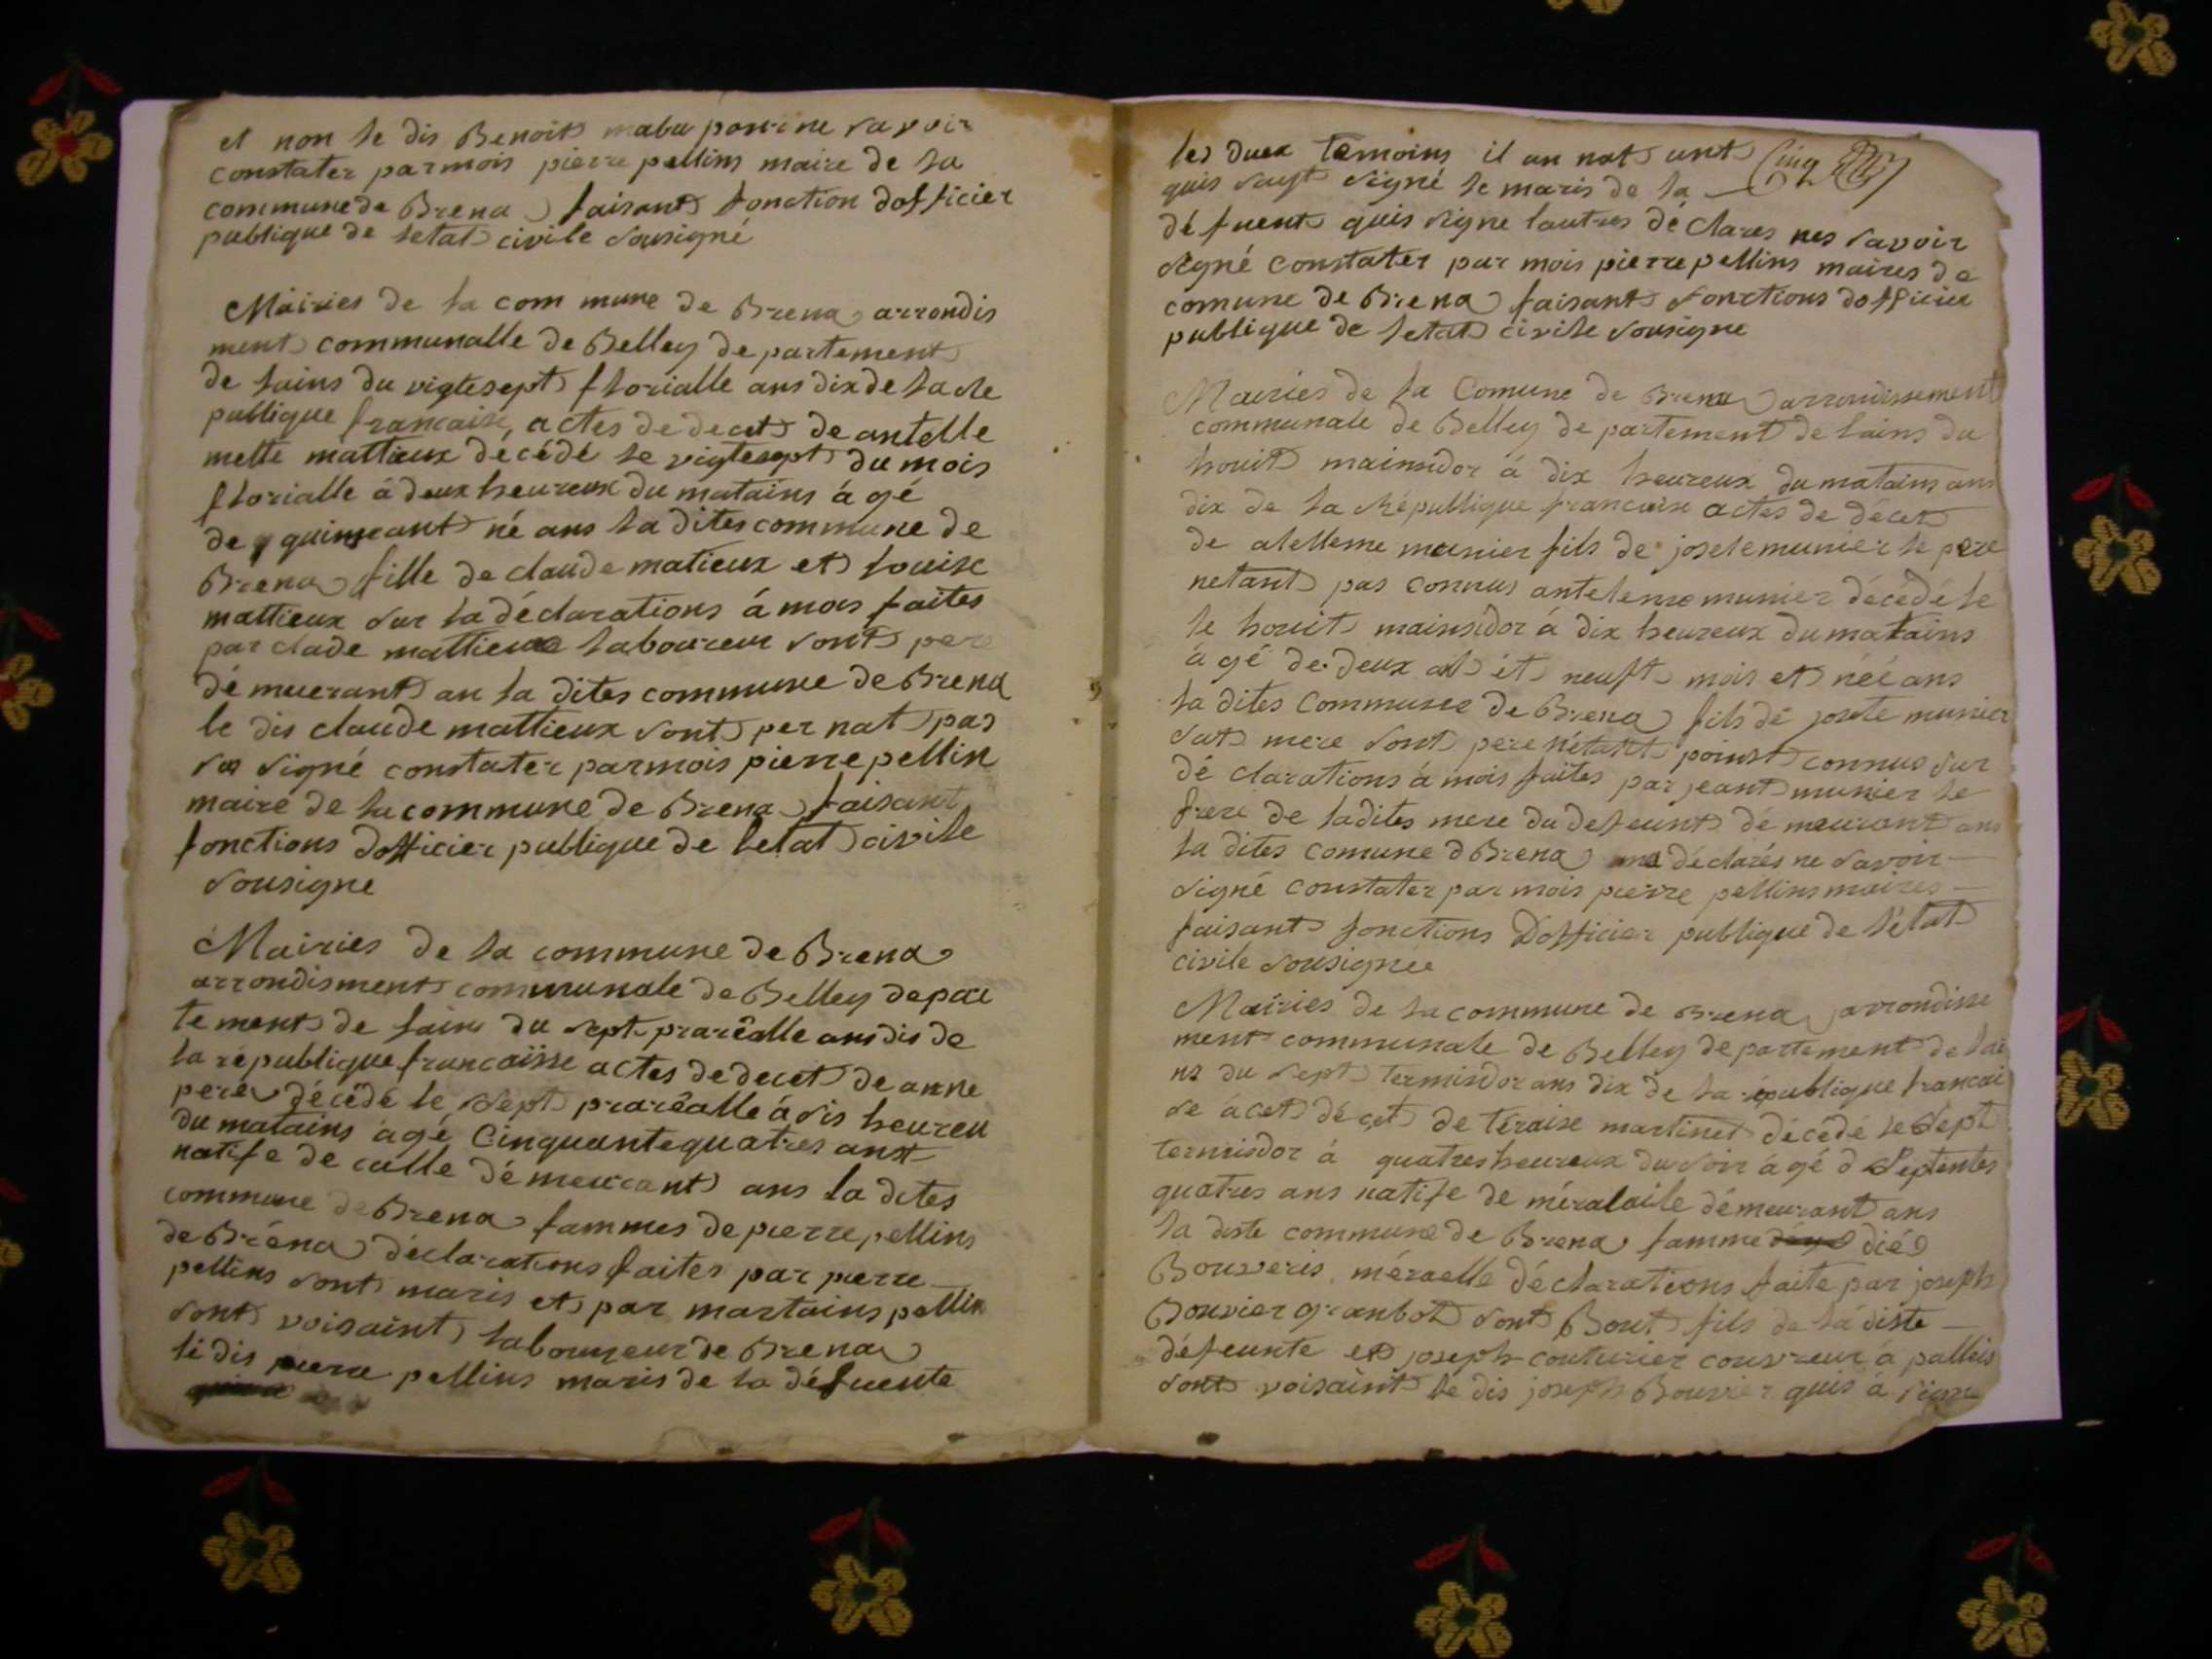 et non le dis Benoit
constater par mois pierre pellins maire de la
commune de Brena faisant fonction dofficier
publique de letat civile sousigné
Mairies de la com mune de Brena arrondis
ment communalle de Belley de partement
de lains du vigtesept florialle ans dix de la Re
publique francaise actes de decet de antelle
mette mattieux décédé le vigtesept du mois
florialle á deux heureux du matains á gé
de quinseant né ans la dites commune de
Brena fille de claude matieux et louise
mattieux sur la déclarations á mois faites
par clade mattieux laboureur sont pere
dé meuerant an la dites commune de Brena
le dis claude mattieux sont per nat pas
sa signé constater parmois pierre pellin
maire de la commune de Brena faisant
fonctions dofficier publique de letat civile
sousigne
Mairies de la commune de Brena
arrondisment communale de Belley depar
tement de lains du sept prarêalle ans dis de
la république francaïsse actes de decet de anne
pere décédé le sept prarêalle á dis heureu
du matains agé Cinquantequatres anst
natife de culle démeurant ans la dites
commune de Brena fammes de pierre pellins
de Bréna déclarations faites par pierre
pellins sont maris et par martains pellin
sont voisaint laboureur de Brena
le dis pierre pellins maris de la défuente
les duex temoins il un nat unt Cinq
quis signé le maris de la
défuent quis signe lautres dé clares nes savoir
signé constater par mois pierre pellins maires de
comune de Brena faisant fonctions dofficier
publique de letat civile sousigne
Mairies de la Comune de Brena arrondissement
communale de Belley de partement de lains du
houit mainsidor á dix heureux du matains ans
dix de la République francaise actes de décet
de atelleme munier fils de josete munier le pere
netant pas connus anteleme munier décédé le
le houit mainsidor á dix heureux du matains
á gé de deux at et neuft mois et néé ans
la dites Communes de Brena fils dé josete munier
sat mere sont pere nétant poinst connus sur
dé clarations á mois faites par jeant munier le
frere de ladites mere du defeunt dé meurant ans
la dites comune d Brena déclarés ne savoir
signé constater par mois pierre pellins maires
faisant fonctions Dofficier publique de létat
civile sousignée
Mairies de la commune de Brena arrondisse
ment communale de Belley departement de lai
ns du sept termisdor ans dix de la république francai
se ácet décet de téraise martinet décédé le sept
termisdor á quatres heureux du soir á gé d septentes
quatres ans natife de méralaile démeurant ans
la diste commune de Brena famme dié
Bouveris méraelle déclarations faite par joseph
Bouvier granbot sont Bout fils de la diste
défeunte et joseph couturier couvreur á palleis
sont voisaint lé dis joseph Bouvier quis á signe